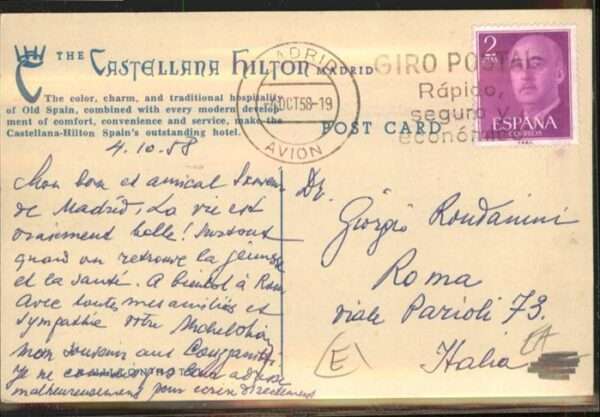 THE CASTELLANA HILTON MADRID
The color, charm, and traditional hospitality
of Old Spain, combined with every modern develop-
ment of comfort, convenience and service, make the
Castellana-Hilton Spain's outstanding hotel.
POST CARD
MADRID
OCT58-19
AVION
GIRO POSTAL
Rápido,
seguro y
económico
2
PTAS
ESPAÑA
CORREOS
4.10.58
Mon bon et amical Souvenir
de Madrid. La vie est
vraiment belle! Surtout
quand on retrouve la jeunesse
et la santé. A bientôt à Rome
Avec toutes mes amitiés et
sympathie votre
mon souvenir aux
Je ne connais pas leur adresse
malheureusement pour écrire directement
Dr.
Giorgio Rondanini
Roma
viale Parioli 73.
Italia
E